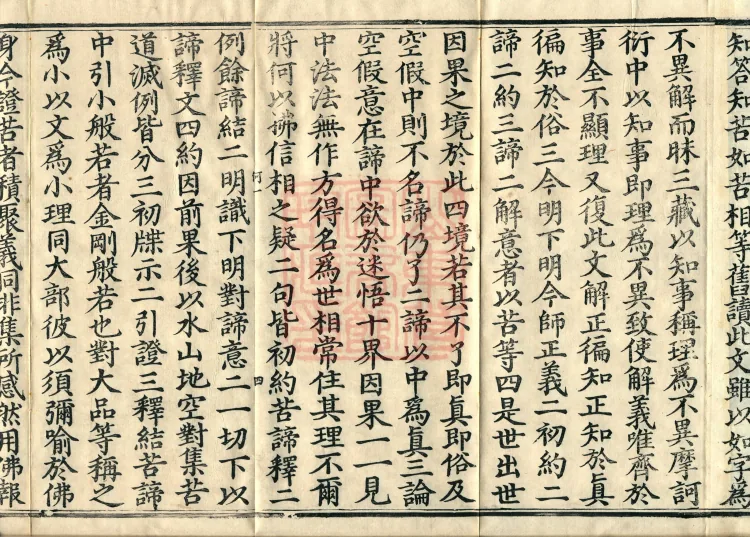 知答知苦如苦相等舊讀此文雖以如字爲
不異解而昧三藏以知事稱理爲不異摩訶
衍中以知事即理爲不異致使解義唯齊於
事全不顯理又復此文解正徧知正知於眞
徧知於俗三今明下明今師正義二初約二
諦二約三諦二解意者以苦等四是世出世
因果之境於此四境若其不了即眞即俗及
空假中則不名諦仍了二諦以中爲眞三論
空假意在諦中欲於迷悟十界因果一一見
中法法無作方得名爲世相常住其理不爾
將何以拂信相之疑二句皆初約苦諦釋二
河一
四
例餘諦結二明識下明對諦意二一切下以
諦釋文四約因前果後以水山地空對集苦
道滅例皆分三初牒示二引證三釋結苦諦
中引小般若者金剛般若也對大品等稱之
爲小以文爲小理同大部彼以須彌喻於佛
身今證苦者積聚義同非集所感然用佛報